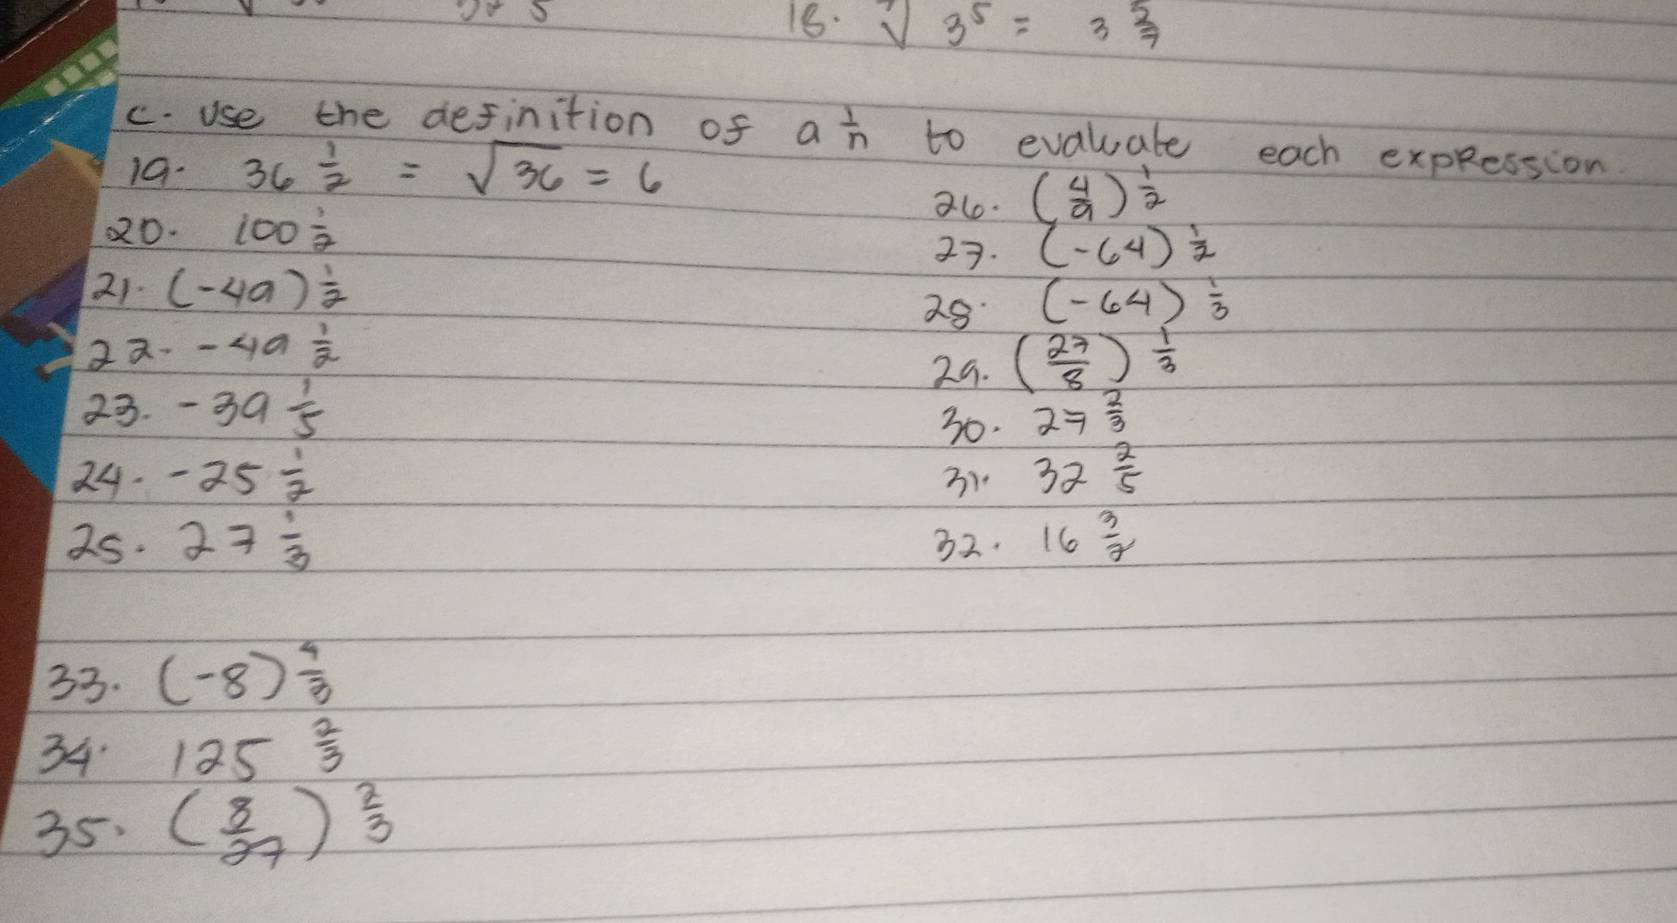 18. √ 3⁵ = 3 5/7
c. Use the definition of a 1/n to evaluate each expression.
19. 36 1/2 = √36 = 6
20. 100 1/2
21. (-49) 1/2
22. -49 1/2
23. -39 1/5
24. -25 1/2
25. 27 1/3
26. (4/9) 1/2
27. (-64) 1/2
28. (-64) 1/3
29. (27/8) 1/3
30. 27 2/3
31. 32 2/5
32. 16 3/2
33. (-8) 4/3
34. 125 2/3
35. (8/27) 2/3